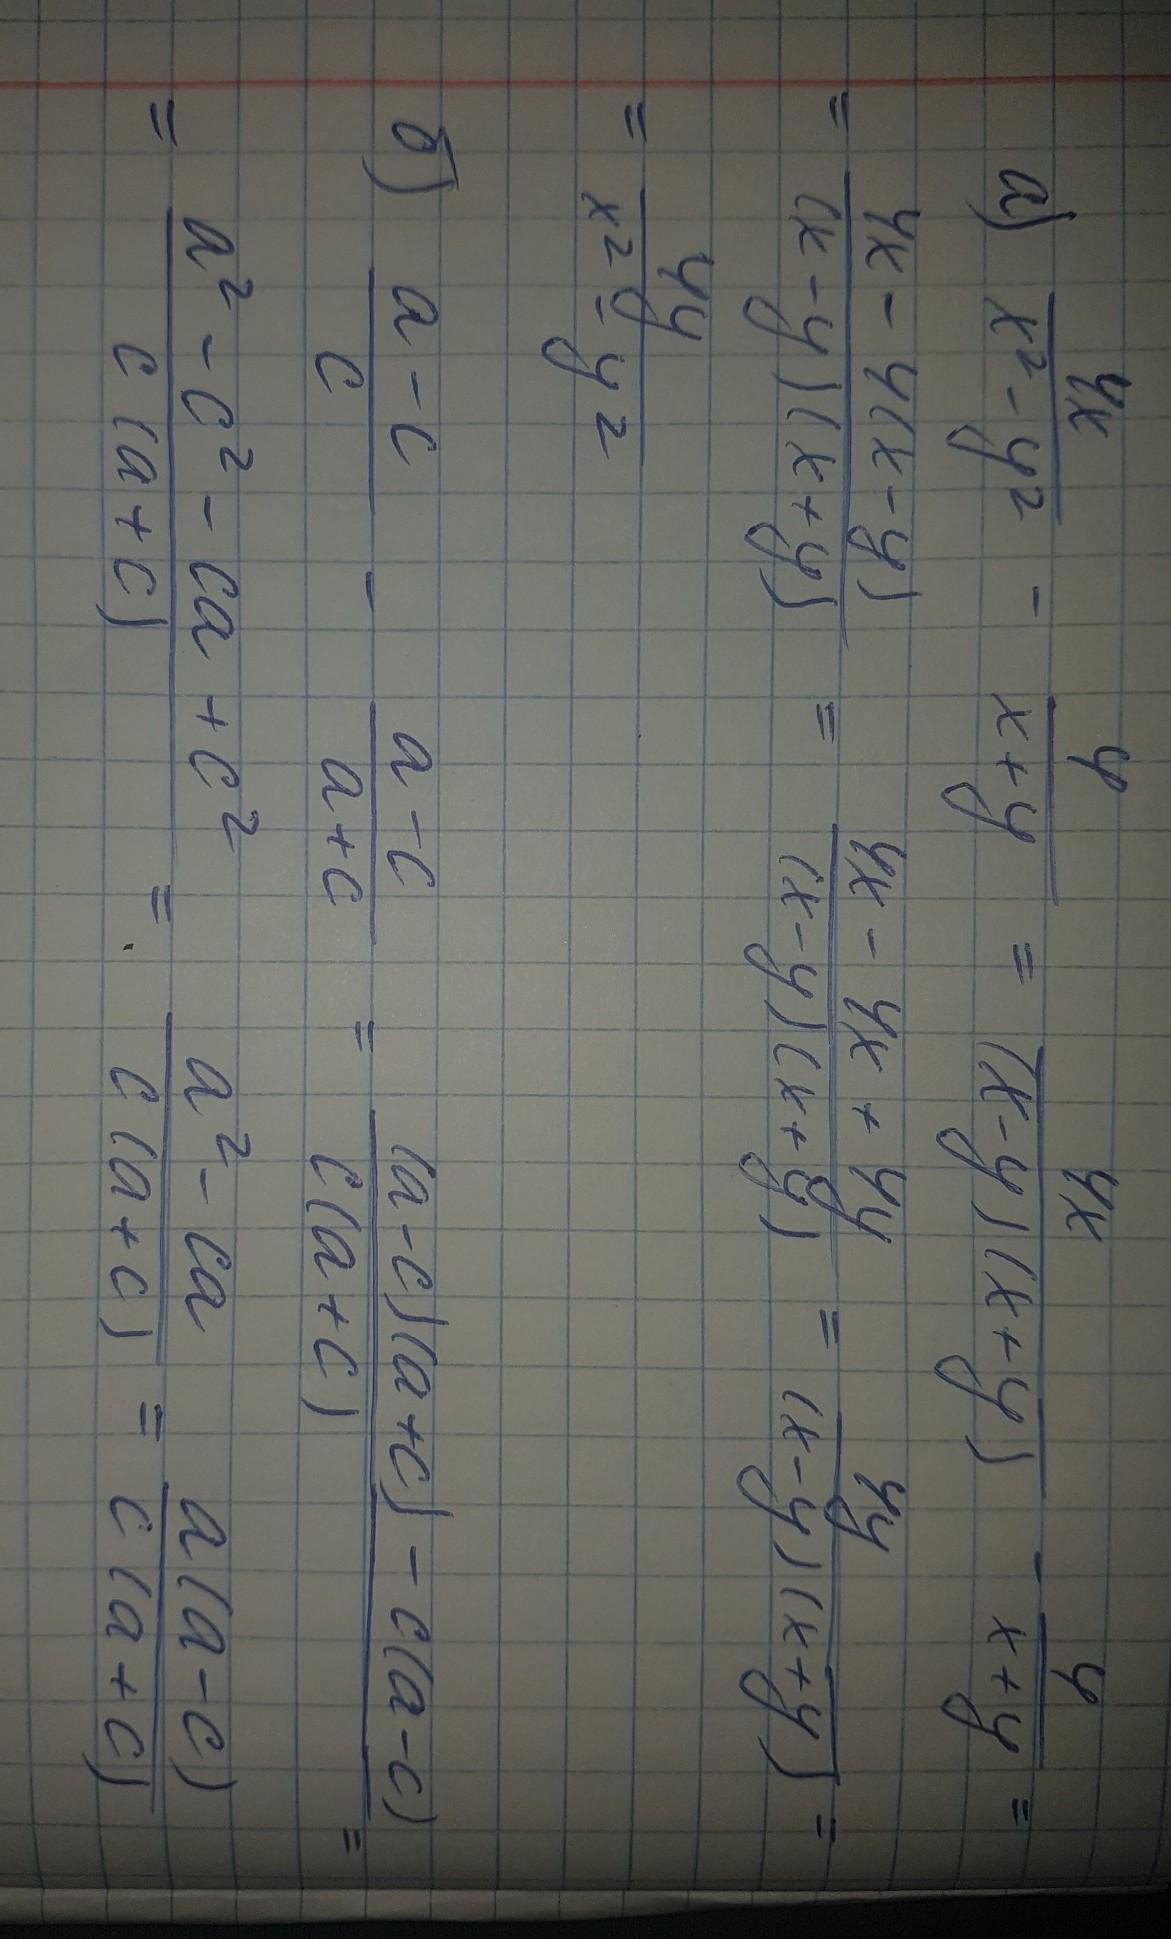 а) 4x/(x² - y²) - 4/(x+y) = 4x/((x-y)(x+y)) - 4/(x+y) =
= (4x - 4(x-y))/((x-y)(x+y)) = (4x - 4x + 4y)/((x-y)(x+y)) = 4y/((x-y)(x+y)) =
= 4y/(x² - y²)
б) (a-c)/c - (a-c)/(a+c) = ((a-c)(a+c) - c(a-c))/(c(a+c)) =
= (a² - c² - ca + c²)/(c(a+c)) = (a² - ca)/(c(a+c)) = (a(a-c))/(c(a+c))